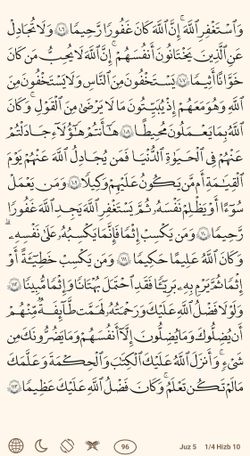 وَٱسْتَغْفِرِ ٱللَّهَ ۖ إِنَّ ٱللَّهَ كَانَ غَفُورًا رَّحِيمًا ١٠٦ وَلَا تُجَٰدِلْ
عَنِ ٱلَّذِينَ يَخْتَانُونَ أَنفُسَهُمْ ۚ إِنَّ ٱللَّهَ لَا يُحِبُّ مَن كَانَ
خَوَّانًا أَثِيمًا ١٠٧ يَسْتَخْفُونَ مِنَ ٱلنَّاسِ وَلَا يَسْتَخْفُونَ مِنَ
ٱللَّهِ وَهُوَ مَعَهُمْ إِذْ يُبَيِّتُونَ مَا لَا يَرْضَىٰ مِنَ ٱلْقَوْلِ ۚ وَكَانَ
ٱللَّهُ بِمَا يَعْمَلُونَ مُحِيطًا ١٠٨ هَٰٓأَنتُمْ هَٰٓؤُلَآءِ جَٰدَلْتُمْ
عَنْهُمْ فِى ٱلْحَيَوٰةِ ٱلدُّنْيَا فَمَن يُجَٰدِلُ ٱللَّهَ عَنْهُمْ يَوْمَ
ٱلْقِيَٰمَةِ أَم مَّن يَكُونُ عَلَيْهِمْ وَكِيلًا ١٠٩ وَمَن يَعْمَلْ
سُوٓءًا أَوْ يَظْلِمْ نَفْسَهُۥ ثُمَّ يَسْتَغْفِرِ ٱللَّهَ يَجِدِ ٱللَّهَ غَفُورًا
رَّحِيمًا ١١٠ وَمَن يَكْسِبْ إِثْمًا فَإِنَّمَا يَكْسِبُهُۥ عَلَىٰ نَفْسِهِۦ ۚ
وَكَانَ ٱللَّهُ عَلِيمًا حَكِيمًا ١١١ وَمَن يَكْسِبْ خَطِيٓـَٔةً أَوْ
إِثْمًا ثُمَّ يَرْمِ بِهِۦ بَرِيٓـًٔا فَقَدِ ٱحْتَمَلَ بُهْتَٰنًا وَإِثْمًا مُّبِينًا ١١٢
وَلَوْلَا فَضْلُ ٱللَّهِ عَلَيْكَ وَرَحْمَتُهُۥ لَهَمَّت طَّآئِفَةٌ مِّنْهُمْ
أَن يُضِلُّوكَ وَمَا يُضِلُّونَ إِلَّآ أَنفُسَهُمْ ۖ وَمَا يَضُرُّونَكَ مِن
شَىْءٍ ۚ وَأَنزَلَ ٱللَّهُ عَلَيْكَ ٱلْكِتَٰبَ وَٱلْحِكْمَةَ وَعَلَّمَكَ
مَا لَمْ تَكُن تَعْلَمُ ۚ وَكَانَ فَضْلُ ٱللَّهِ عَلَيْكَ عَظِيمًا ١١٣
96 Juz 5 1/4 Hizb 10